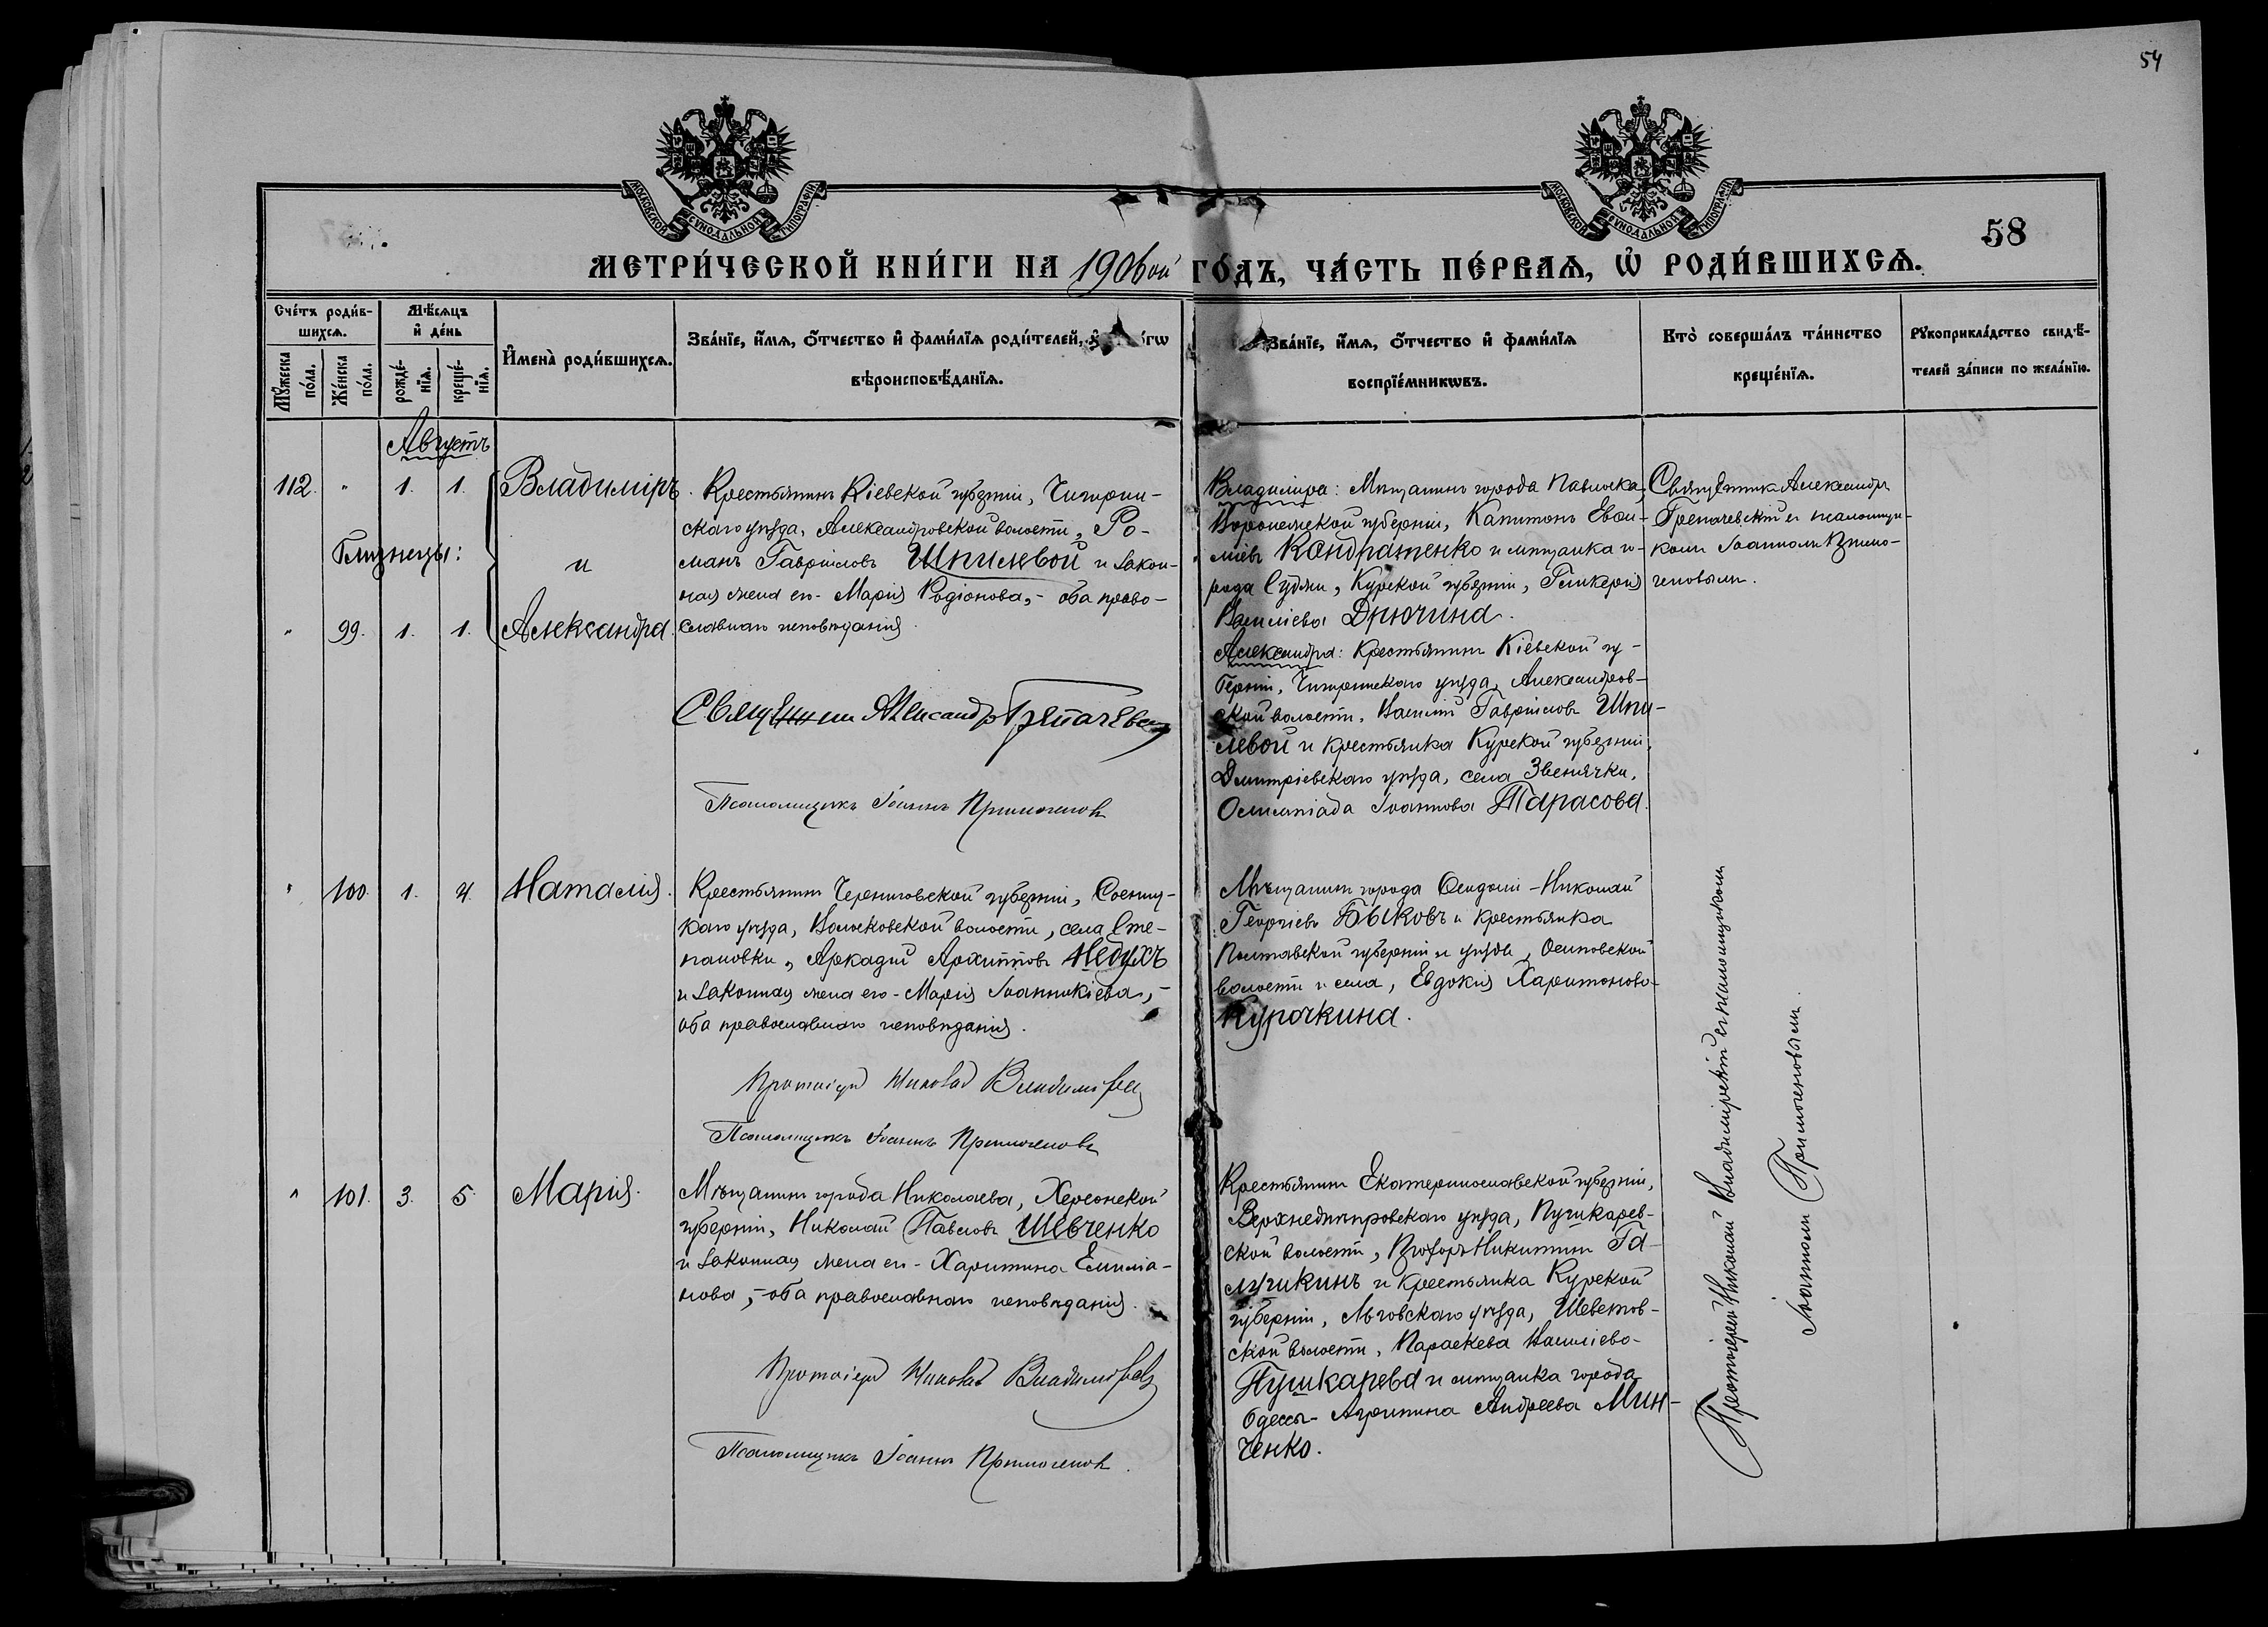 54
МОСКОВСКОЙ СѴНОДАЛЬНОЙ ТИПОГРАФІИ
МОСКОВСКОЙ СѴНОДАЛЬНОЙ ТИПОГРАФІИ
58
МЕТРИ́ЧЕСКОЙ КНИ́ГИ НА 1906ой ГО́ДЪ, ЧА́СТЬ ПЕ́РВАѦ, Ѡ РОДИ́ВШИХСѦ.
Сче́тъ роди́в-
шихсѧ.
Мꙋжеска по́ла.
Же́нска по́ла.
Мѣ́сѧцъ
и҆ де́нь
рожде́-
нїѧ.
креще́-
нїѧ.
И҆мена̀ роди́вшихсѧ.
Зва́нїе, и҆́мѧ, ѻ҆́тчество и҆ фами́лїѧ роди́телей,
вѣроисповѣ́данїѧ.
Зва́нїе, и҆́мѧ, ѻ҆́тчество и҆ фами́лїѧ
воспрїе́мникѡвъ.
Кто̀ соверша́лъ та́инство
креще́нїѧ.
Рꙋкоприкла́дство свидѣ́-
телей за́писи по жела́нїю.
Августъ
112. " 1. 1. Владиміръ
Близнецы:
и
" 99. 1. 1. Александра.
Крестьянинъ Кіевской губерніи, Чигирин-
скаго уѣзда, Александровской волости, Ро-
манъ Гавриловъ Шпилевой и закон-
ная жена его - Марія Родіонова, - оба право-
славнаго исповѣданія.
Священник Александр Грепачевский
Псаломщикъ Іоаннъ Примоченовъ
Владиміра: Мѣщанинъ города Павловска,
Воронежской губерніи, Капитонъ
Кондратенко и мѣщанка го-
рода Суджи, Курской губерніи, Гликерія
Василіева Дрючина.
Александра: Крестьянинъ Кіевской гу-
берніи, Чигиринскаго уѣзда, Александров-
ской волости, Василій Гавриловъ Шпи-
левой и крестьянка Курской губерніи,
Дмитріевскаго уѣзда, села Звенячки,
Олимпіада Іоаннова Тарасова.
Священникъ Александръ
Грепачевскій съ псаломщи-
комъ Іоанномъ Примо-
ченовымъ.
" 100. 1. 4. Наталія.
Крестьянинъ Черниговской губерніи, Сосниц-
каго уѣзда, Волосковской волости, села Сте-
пановки, Аркадій Архиповъ Недухъ
и законная жена его - Марія Іоанникіева, -
оба православнаго исповѣданія.
Протоіерей Николай Владимірскій
Псаломщикъ Іоаннъ Примоченовъ
Мѣщанинъ города Ѳеодосіи - Николай
Георгіевъ Быковъ и крестьянка
Полтавской губерніи и уѣзда, Осиповской
волости и села, Евдокія Харитонова
Курочкина.
" 101. 3. 5. Марія.
Мѣщанинъ города Николаева, Херсонской
губерніи, Николай Павловъ Шевченко
и законная жена его - Харитина Емиліа-
нова, - оба православнаго исповѣданія.
Протоіерей Николай Владимірскій
Псаломщикъ Іоаннъ Примоченовъ.
Крестьянинъ Екатеринославской губерніи,
Верхнеднѣпровскаго уѣзда, Пушкарев-
ской волости, Никитинъ Га-
лушкинъ и крестьянка Курской
губерніи, Льговскаго уѣзда, Шевелов-
ской волости, Параскева Василіева
Пушкарева и мѣщанка города
Одессы - Агрипина Андреева Мин-
ченко.
Протоіерей Николай Владимірскій съ псаломщикомъ
Іоанномъ Примоченовымъ.